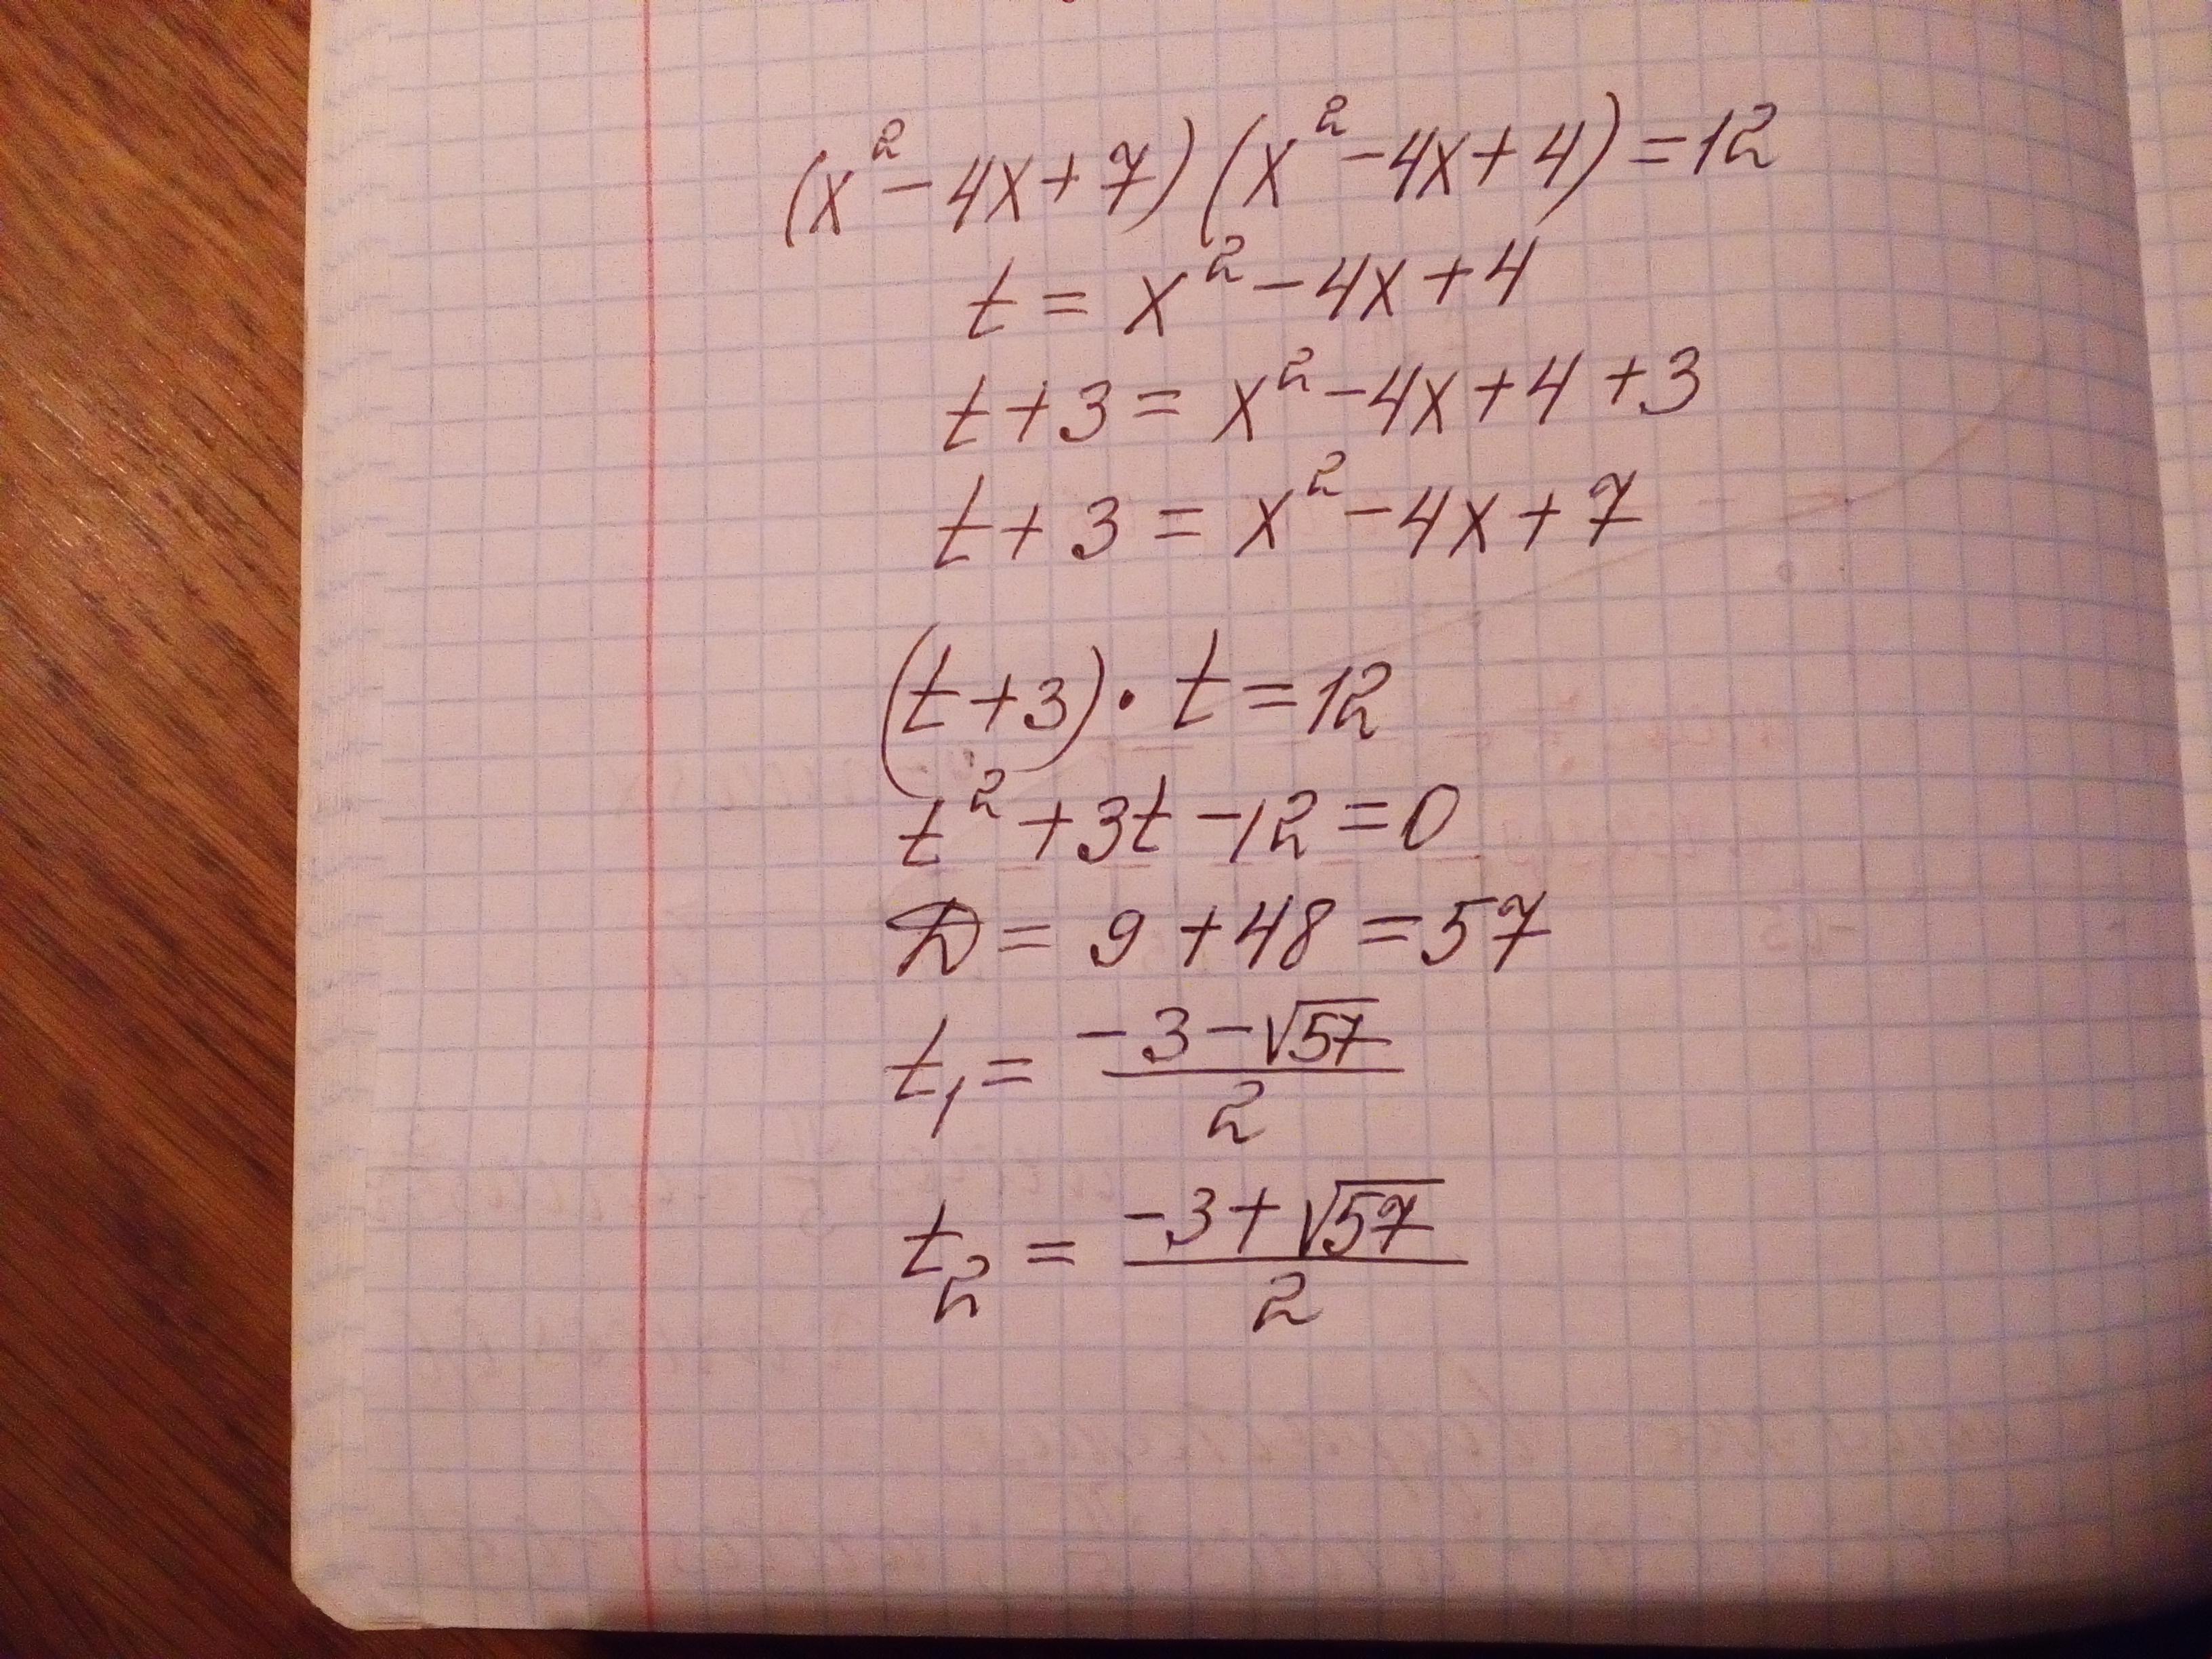 (x² - 4x + 7)(x² - 4x + 4) = 12
t = x² - 4x + 4
t + 3 = x² - 4x + 4 + 3
t + 3 = x² - 4x + 7
(t + 3) · t = 12
t² + 3t - 12 = 0
D = 9 + 48 = 57
t₁ = (-3 - √57)/2
t₂ = (-3 + √57)/2